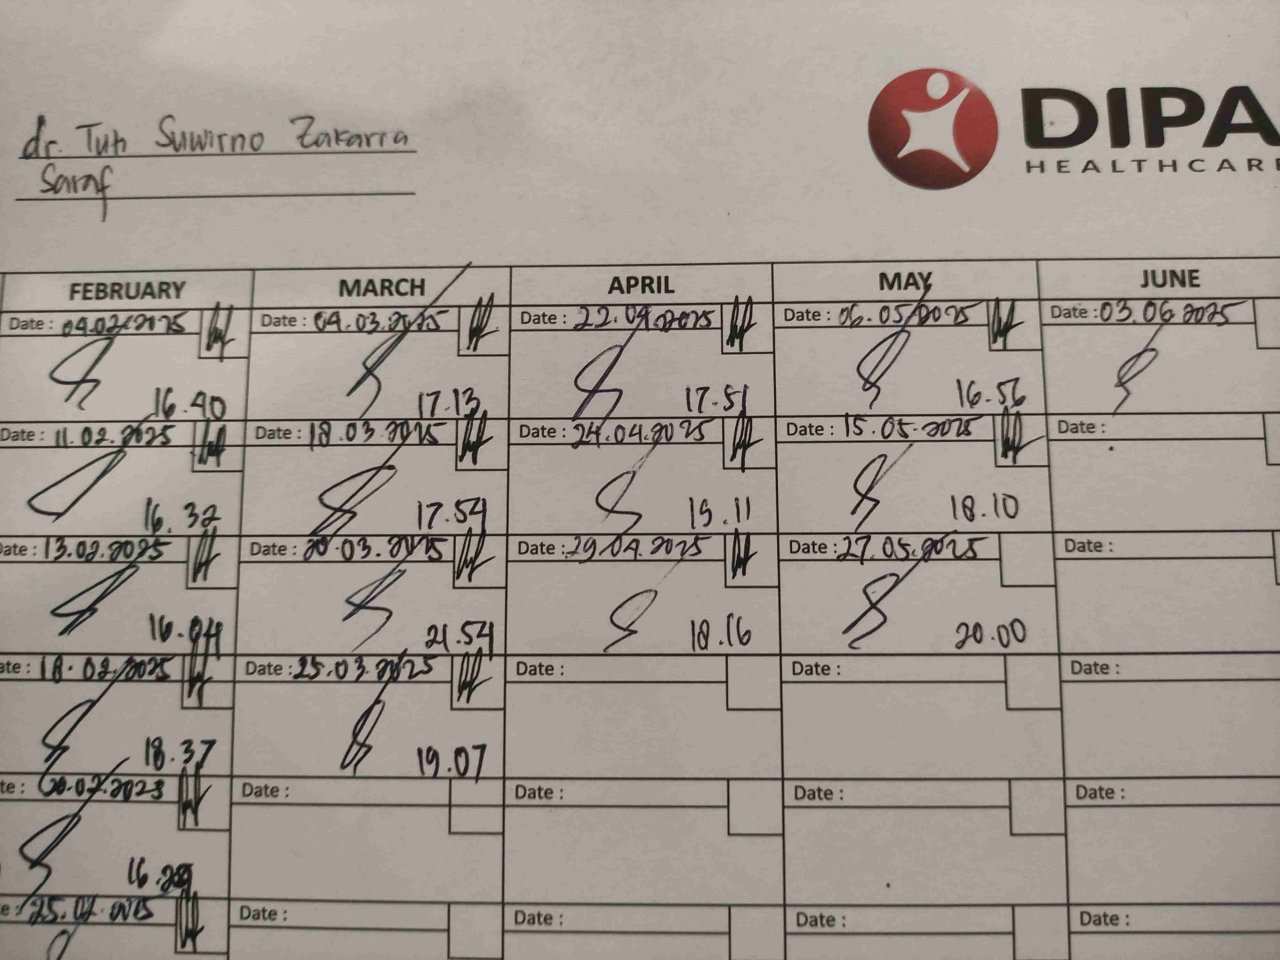 dr. Tuti Suwirno Zakaria
Saraf
DIPA
HEALTHCARE
FEBRUARY MARCH APRIL MAY JUNE
Date : 04.02.2025 Date : 04.03.2025 Date : 22.04.2025 Date : 06.05.2025 Date : 03.06.2025
16.40 17.13 17.51 16.56
Date : 11.02.2025 Date : 18.03.2025 Date : 24.04.2025 Date : 15.05.2025 Date :
16.32 17.54 19.11 18.10
Date : 13.02.2025 Date : 20.03.2025 Date : 29.04.2025 Date : 27.05.2025 Date :
16.04 21.54 18.16 20.00
ate : 18.02.2025 Date : 25.03.2025 Date : Date : Date :
18.37 19.07
te : 20.02.2023 Date : Date : Date : Date :
16.
e : 25.02.2025 Date : Date : Date : Date :